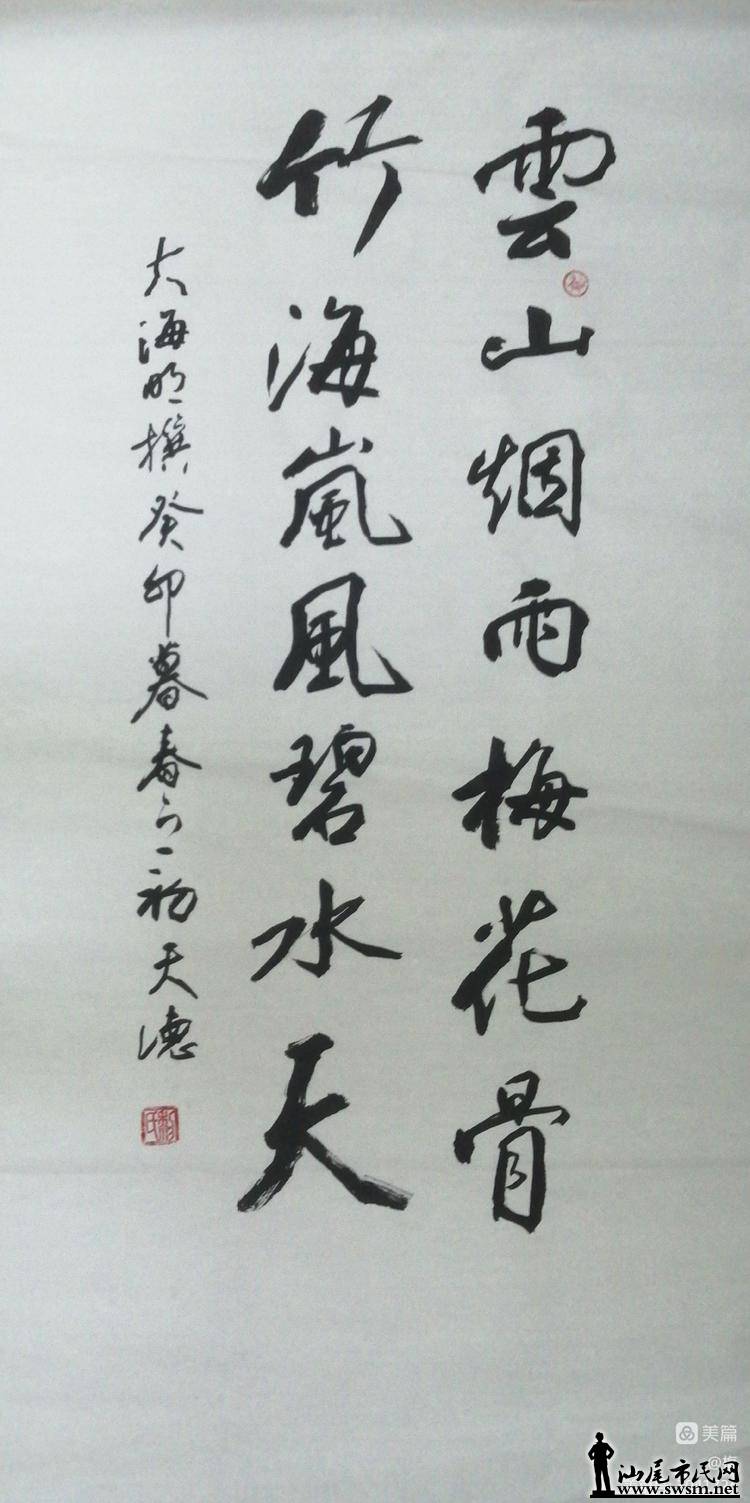 雲山烟雨梅花骨
竹海嵐風碧水天
大海明撰癸卯暮春之初天德
美篇
汕尾市民网
www.swsm.net